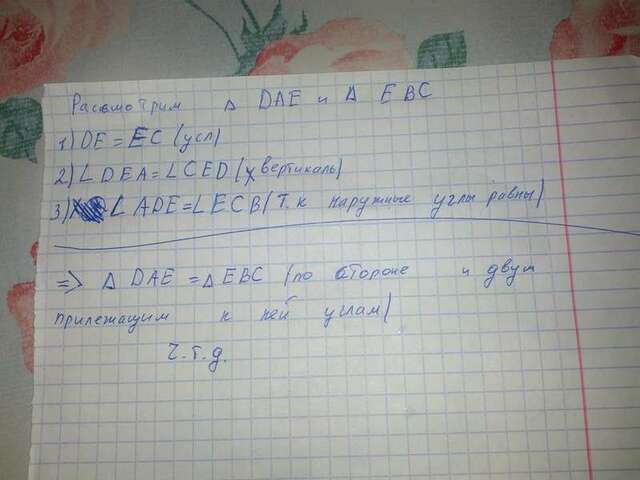 Рассмотрим Δ DAE и Δ EBC
1) DE = EC (усл)
2) ∠ DEA = ∠ CED (вертикаль)
3) ∠ ADE = ∠ ECB (т.к наружные углы равны)
=> Δ DAE = Δ EBC (по стороне и двум
прилежащим к ней углам)
Ч.т.д.